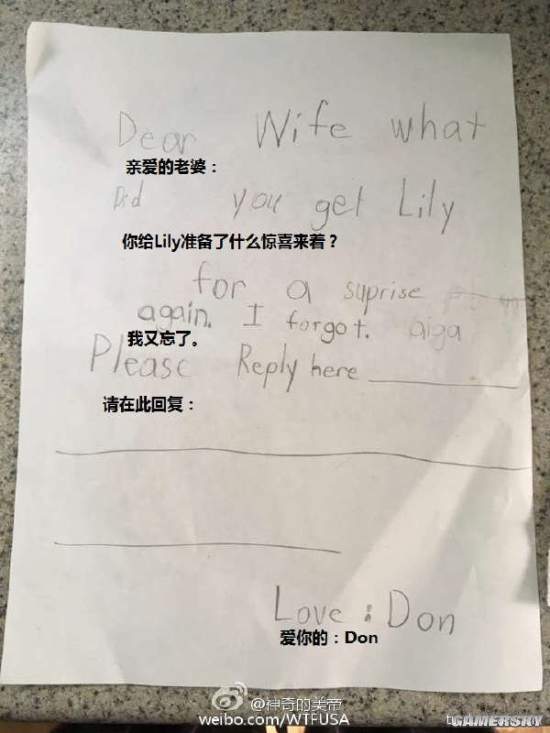 Dear Wife what
亲爱的老婆：
Did you get Lily
你给Lily准备了什么惊喜来着？
for a suprise
again. I forgot. aiga
我又忘了。
Please Reply here
请在此回复：
Love : Don
爱你的：Don
@神奇的美帝
weibo.com/WTFUSA
GAMERSKY